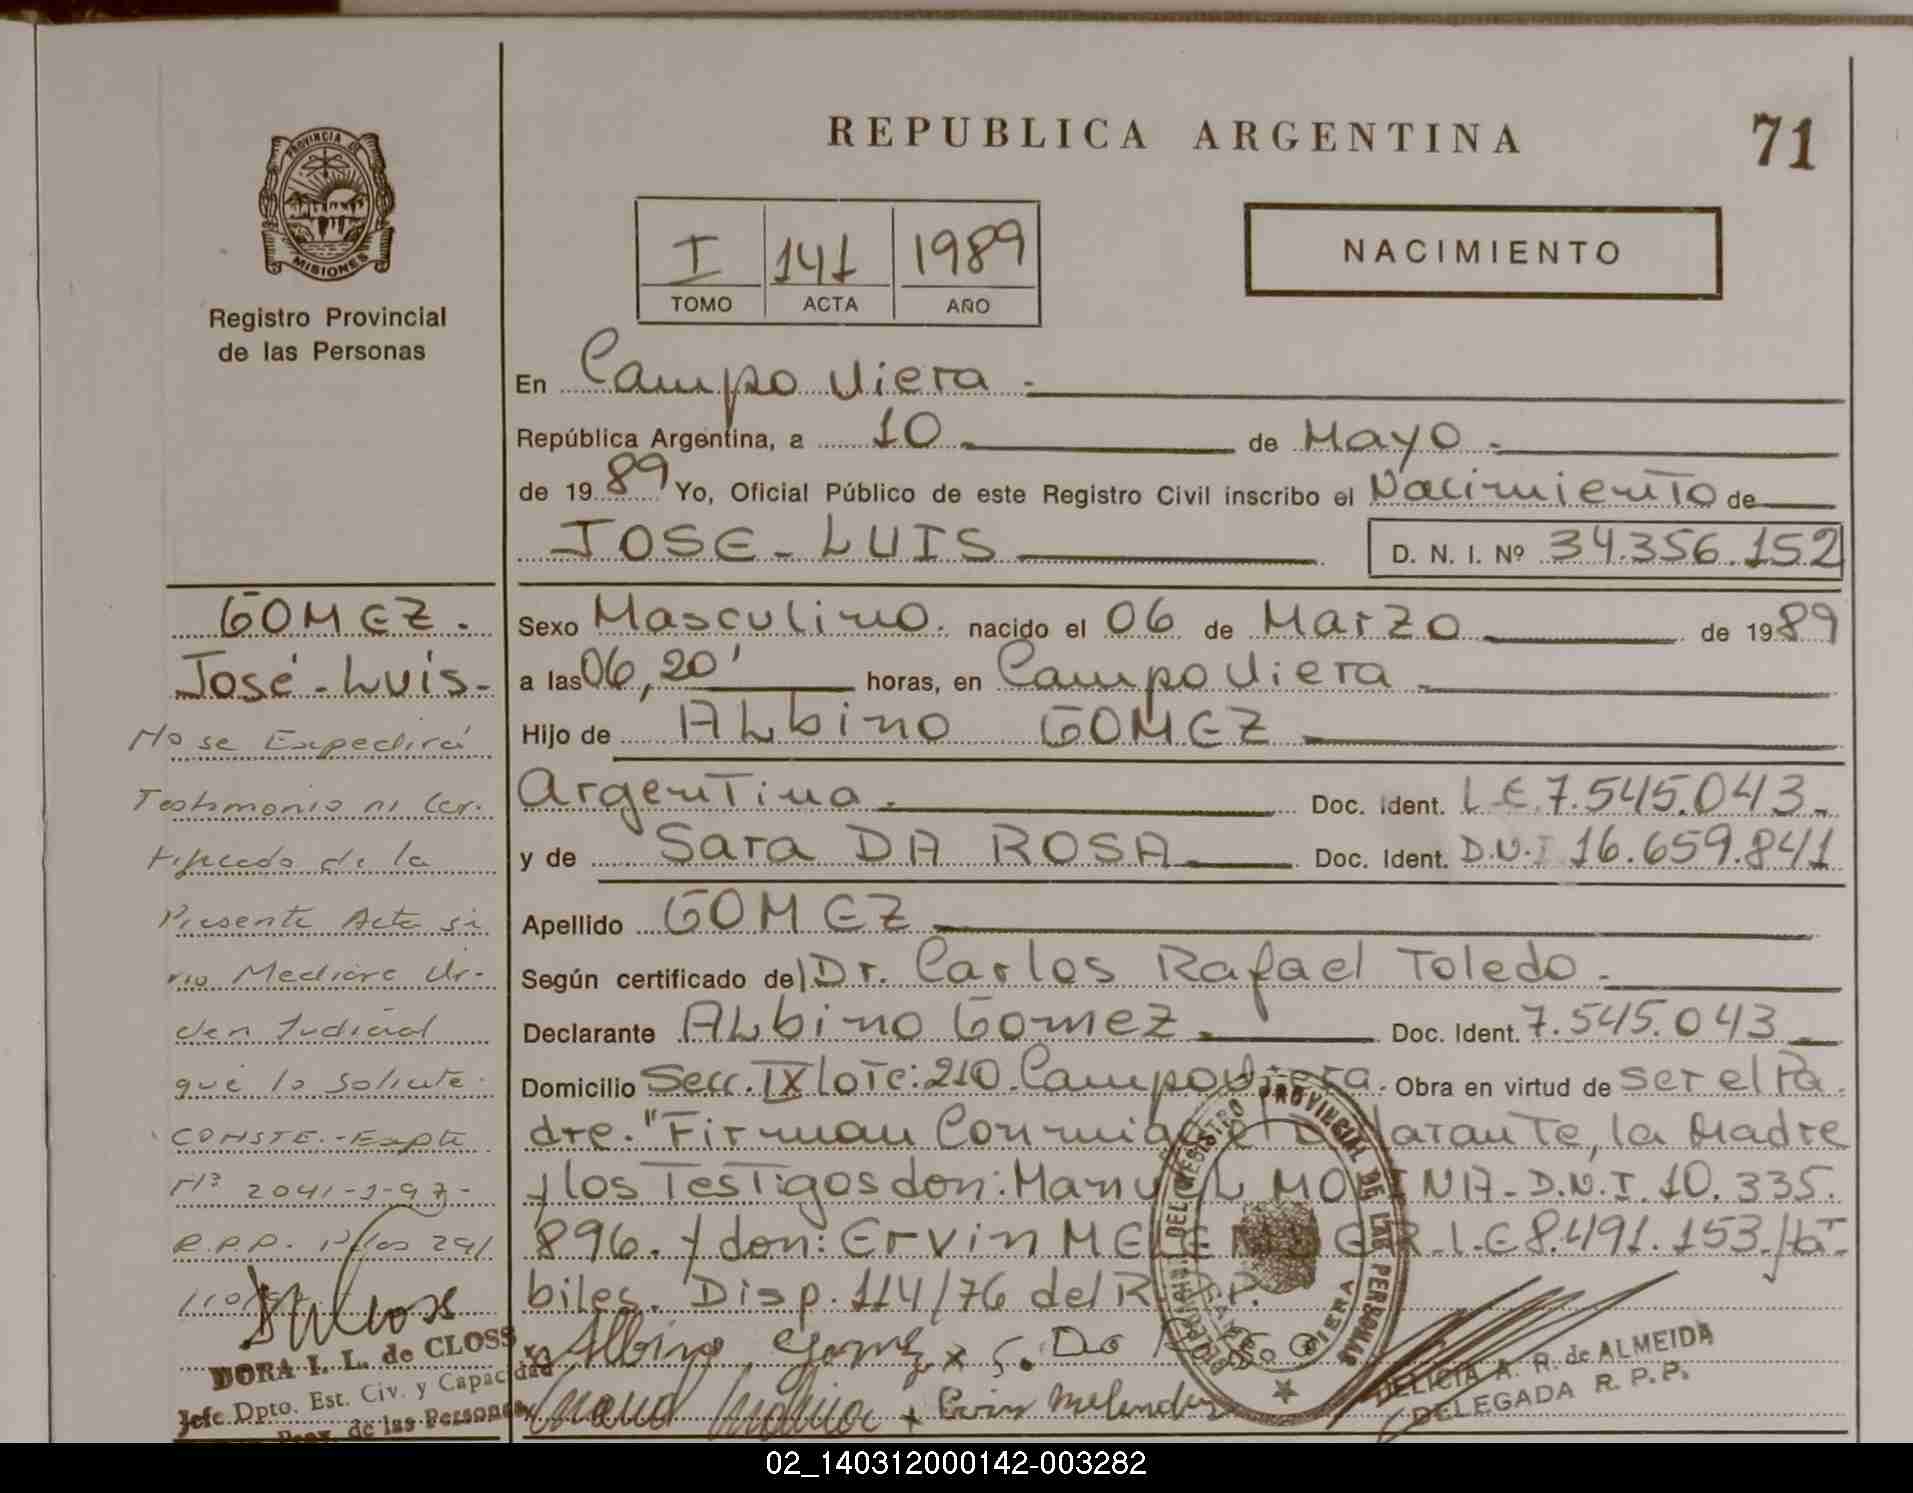 REPUBLICA ARGENTINA
71
PROVINCIA DE
MISIONES
Registro Provincial
de las Personas
I 141 1989
TOMO ACTA AÑO
NACIMIENTO
En Campo Viera.
República Argentina, a 10 de Mayo.
de 1989 Yo, Oficial Público de este Registro Civil inscribo el Nacimiento de
JOSE-LUIS D. N. I. Nº 34.356.152
Sexo Masculino. nacido el 06 de Marzo de 1989
a las 06,20' horas, en Campo Viera
Hijo de ALbino GOMEZ
Argentina. Doc. Ident. L.E.7.545.043.
y de Sara DA ROSA Doc. Ident. D.N.I 16.659.841
Apellido GOMEZ
Según certificado del Dr. Carlos Rafael Toledo.
Declarante ALbino Gomez. Doc. Ident. 7.545.043
Domicilio Secc. IX lote: 210. Campo Viera. Obra en virtud de ser el Pa-
dre. "Firman Conmigo el Declarante, la Madre
y los Testigos don: Manuel MOLINA-D.N.I. 10.335.
896. y don: Ervin MELENDER. L.E 8.491.153./Há-
biles. Disp. 114/76 del R.P.P.
Albino Gomez x S. Da Rosa
Manuel Molina + Ervin Melender
GOMEZ.
José-Luis-
No se Expedirá
Testimonio ni Cer-
tificado de la
Presente Acta si
no Mediare Or-
den Judicial
que lo solicite.
CONSTE.-Expte
Nº 2041-J-97-
R.P.P.
DORA I. L. de CLOSS
Jefe Dpto. Est. Civ. y Capacidad
Prov. de las Personas
REGISTRO PROVINCIAL DE LAS PERSONAS
VIERA
DELICIA A. R. de ALMEIDA
DELEGADA R. P. P.
02_140312000142-003282